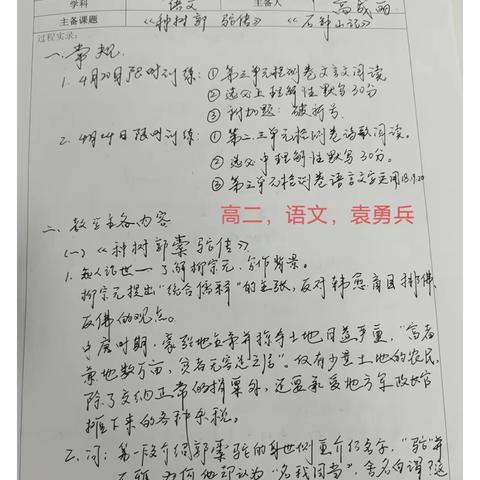 学科 语文 主备人 高成丽
主备课题 《种树郭 驼传》 《石钟山记》
过程实录:
一、常规
1. 4月20日限时训练:①第三单元检测卷文言文阅读
②选必上理解性默写30分
③计划题:破折号
2. 4月24日限时训练:①第二.三单元检测卷诗歌阅读。
②选必中理解性默写30分。
③第三单元检测卷语言文字运用18.19.20
高二,语文,袁勇兵
二、教学主备内容
(一)《种树郭橐驼传》
1. 知人论世—了解柳宗元、创作背景。
柳宗元提出“统合儒释”的主张,反对韩愈盲目排佛、
反佛的观点。
中唐时期,豪强地主兼并掠夺土地日益严重,“富者
兼地数万亩,贫者无容足之居”。仅有少量土地的农民,
除了交纳正常的捐粟外,还要承受地方军政长官
摊下来的各种杂税。
2. 问:第一段介绍郭橐驼的身世侧重介绍名字,“驼”并
不雅,为何他却认为“名我固当”,舍名自谓?这